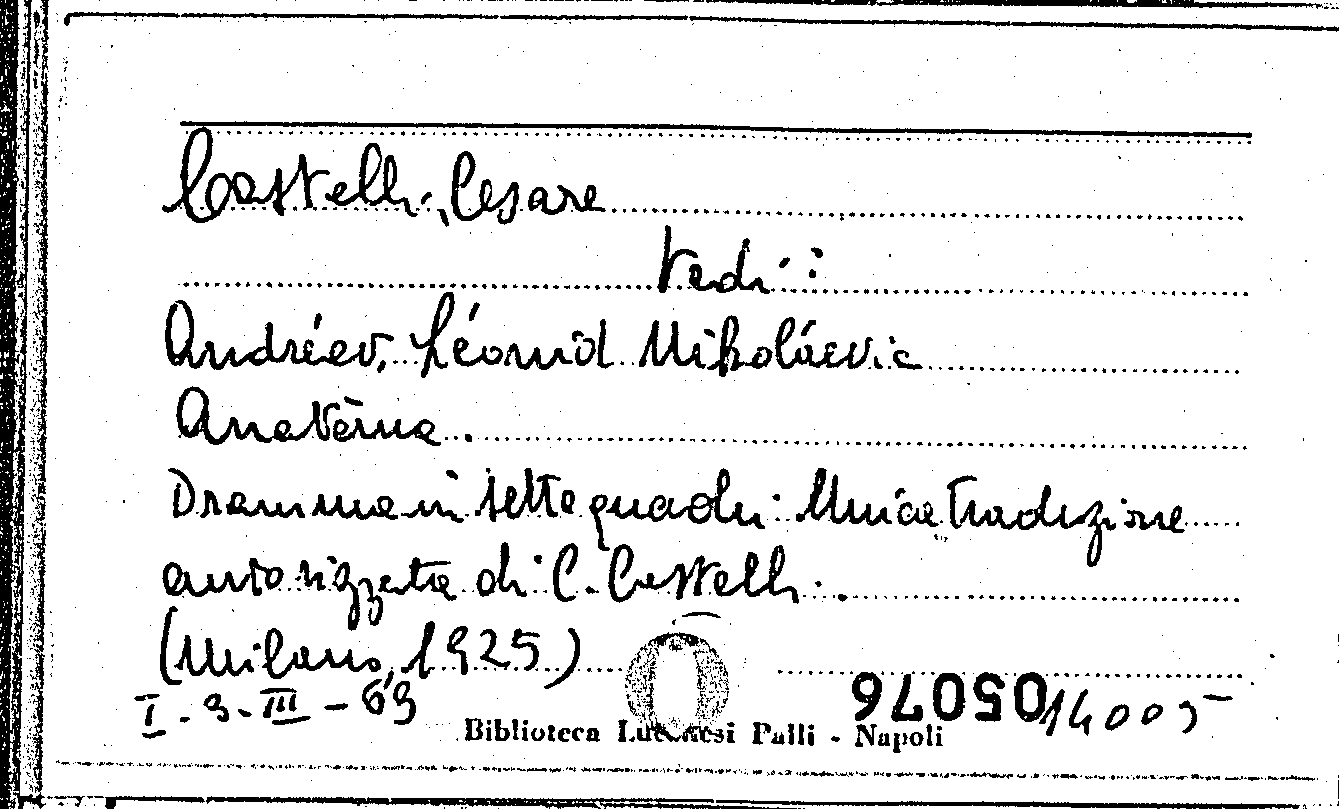 Castelli, Cesare
Vedi:
Andréev, Léonid Nikoláevic
Anatèma.
Dramma in sette quadri. Unica traduzione
autorizzata di C. Castelli.
(Milano, 1925)
I.9.III-69
Biblioteca Lucchesi Palli - Napoli
05076